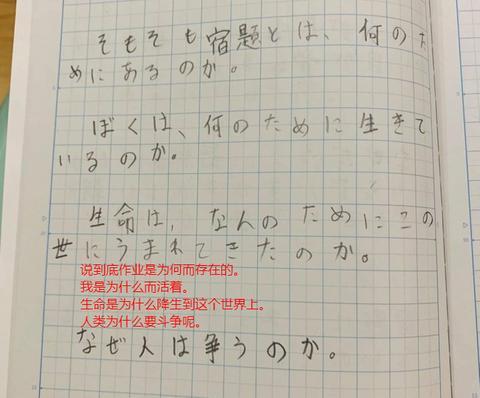 そもそも宿題とは、何のた
めにあるのか。
ぼくは、何のために生きて
いるのか。
生命は、なんのためにこの
世にうまれてきたのか。
说到底作业是为何而存在的。
我是为什么而活着。
生命是为什么降生到这个世界上。
人类为什么要斗争呢。
なぜ人は争うのか。